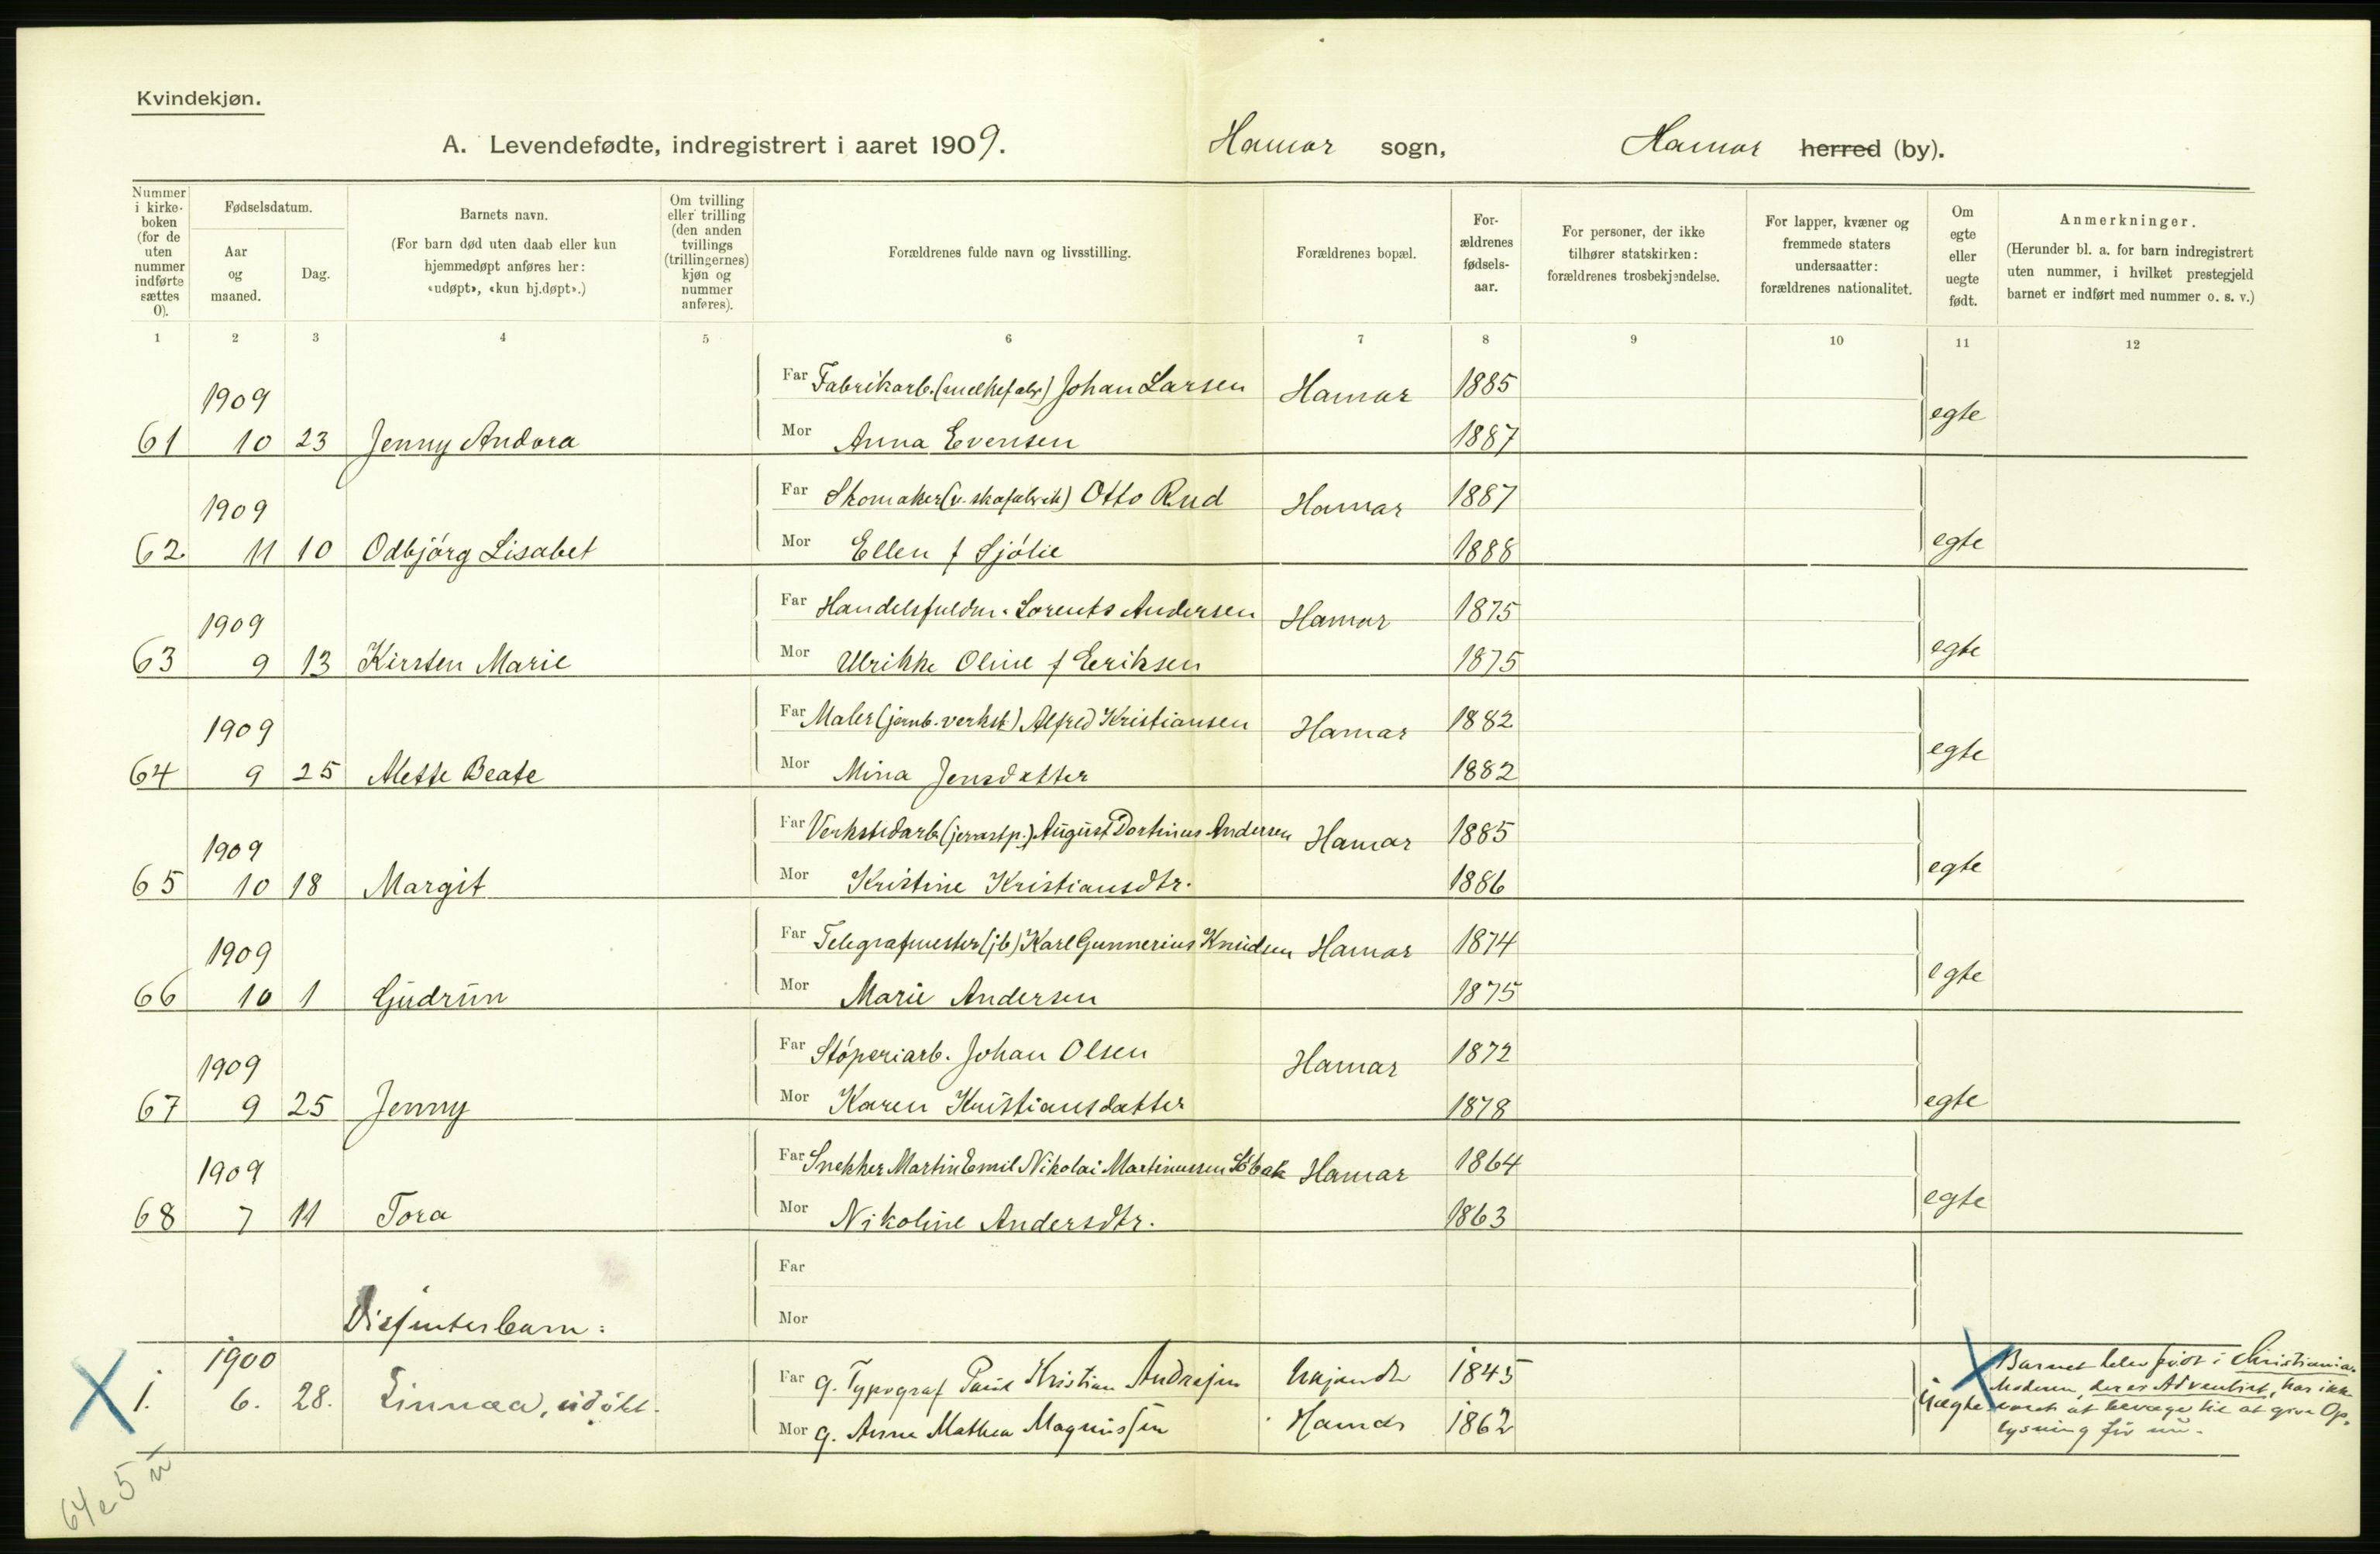 Kvindekjøn.
A. Levendefødte, indregistrert i aaret 1909. Hamar sogn, Hamar herred (by).
Nummer i kirke-boken (for de uten nummer indførte sættes 0).
Fødselsdatum.
Aar og maaned.
Dag.
Barnets navn.
(For barn død uten daab eller kun hjemmedøpt anføres her: «udøpt», «kun hj.døpt».)
Om tvilling eller trilling (den anden tvillings (trillingernes) kjøn og nummer anføres).
Forældrenes fulde navn og livsstilling.
Forældrenes bopæl.
For-ældrenes fødsels-aar.
For personer, der ikke tilhører statskirken: forældrenes trosbekjendelse.
For lapper, kvæner og fremmede staters undersaatter: forældrenes nationalitet.
Om egte eller uegte født.
Anmerkninger.
(Herunder bl. a. for barn indregistrert uten nummer, i hvilket prestegjeld barnet er indført med nummer o. s. v.)
1 2 3 4 5 6 7 8 9 10 11 12
1909 Far Fabrikarb. (melkefabr) Johan Larsen Hamar 1885 egte
61 10 23 Jenny Andora Mor Anna Evensen 1887
1909 Far Skomaker (v. skofabrik) Otto Rud Hamar 1887
62 11 10 Odbjörg Lisabet Mor Ellen f Sjölie 1888 egte
1909 Far Handelsfuldm. Lorents Andersen Hamar 1875
63 9 13 Kirsten Marie Mor Ulrikke Oline f Eeriksen 1875 egte
1909 Far Maler (jernb. verkst) Alfred Kristiansen Hamar 1882
64 9 25 Mette Beate Mor Mina Jensdatter 1882 egte
1909 Far Verkstedarb. August Andersen Hamar 1885
65 10 18 Margit Mor Kristine Kristiansdtr. 1886 egte
1909 Far Telegrafmester (jb) Karl Gunnerius Knudsen Hamar 1874
66 10 1 Gudrun Mor Marie Andersen 1875 egte
1909 Far Stöperiarb. Johan Olsen Hamar 1872
67 9 25 Jenny Mor Karen Kristiansdatter 1878 egte
1909 Far Snekker Martin Emil Nikolai Martinussen Hamar 1864
68 7 11 Tora Mor Nikoline Andersdtr. 1863 egte
Far
Disenterbarn: Mor
1900 Far g. Typograf Paul Kristian Andresen Ukjendt 1845 Barnet blev födt i Christiania.
1. 6. 28. Linnæa, udöbt. Moderen, der er Adventist, har ikke
Mor g. Anne Mathea Magnussen Hamar 1862 Uægte været at bevæge til at give Op-
lysning för nu.
64 e 5 u